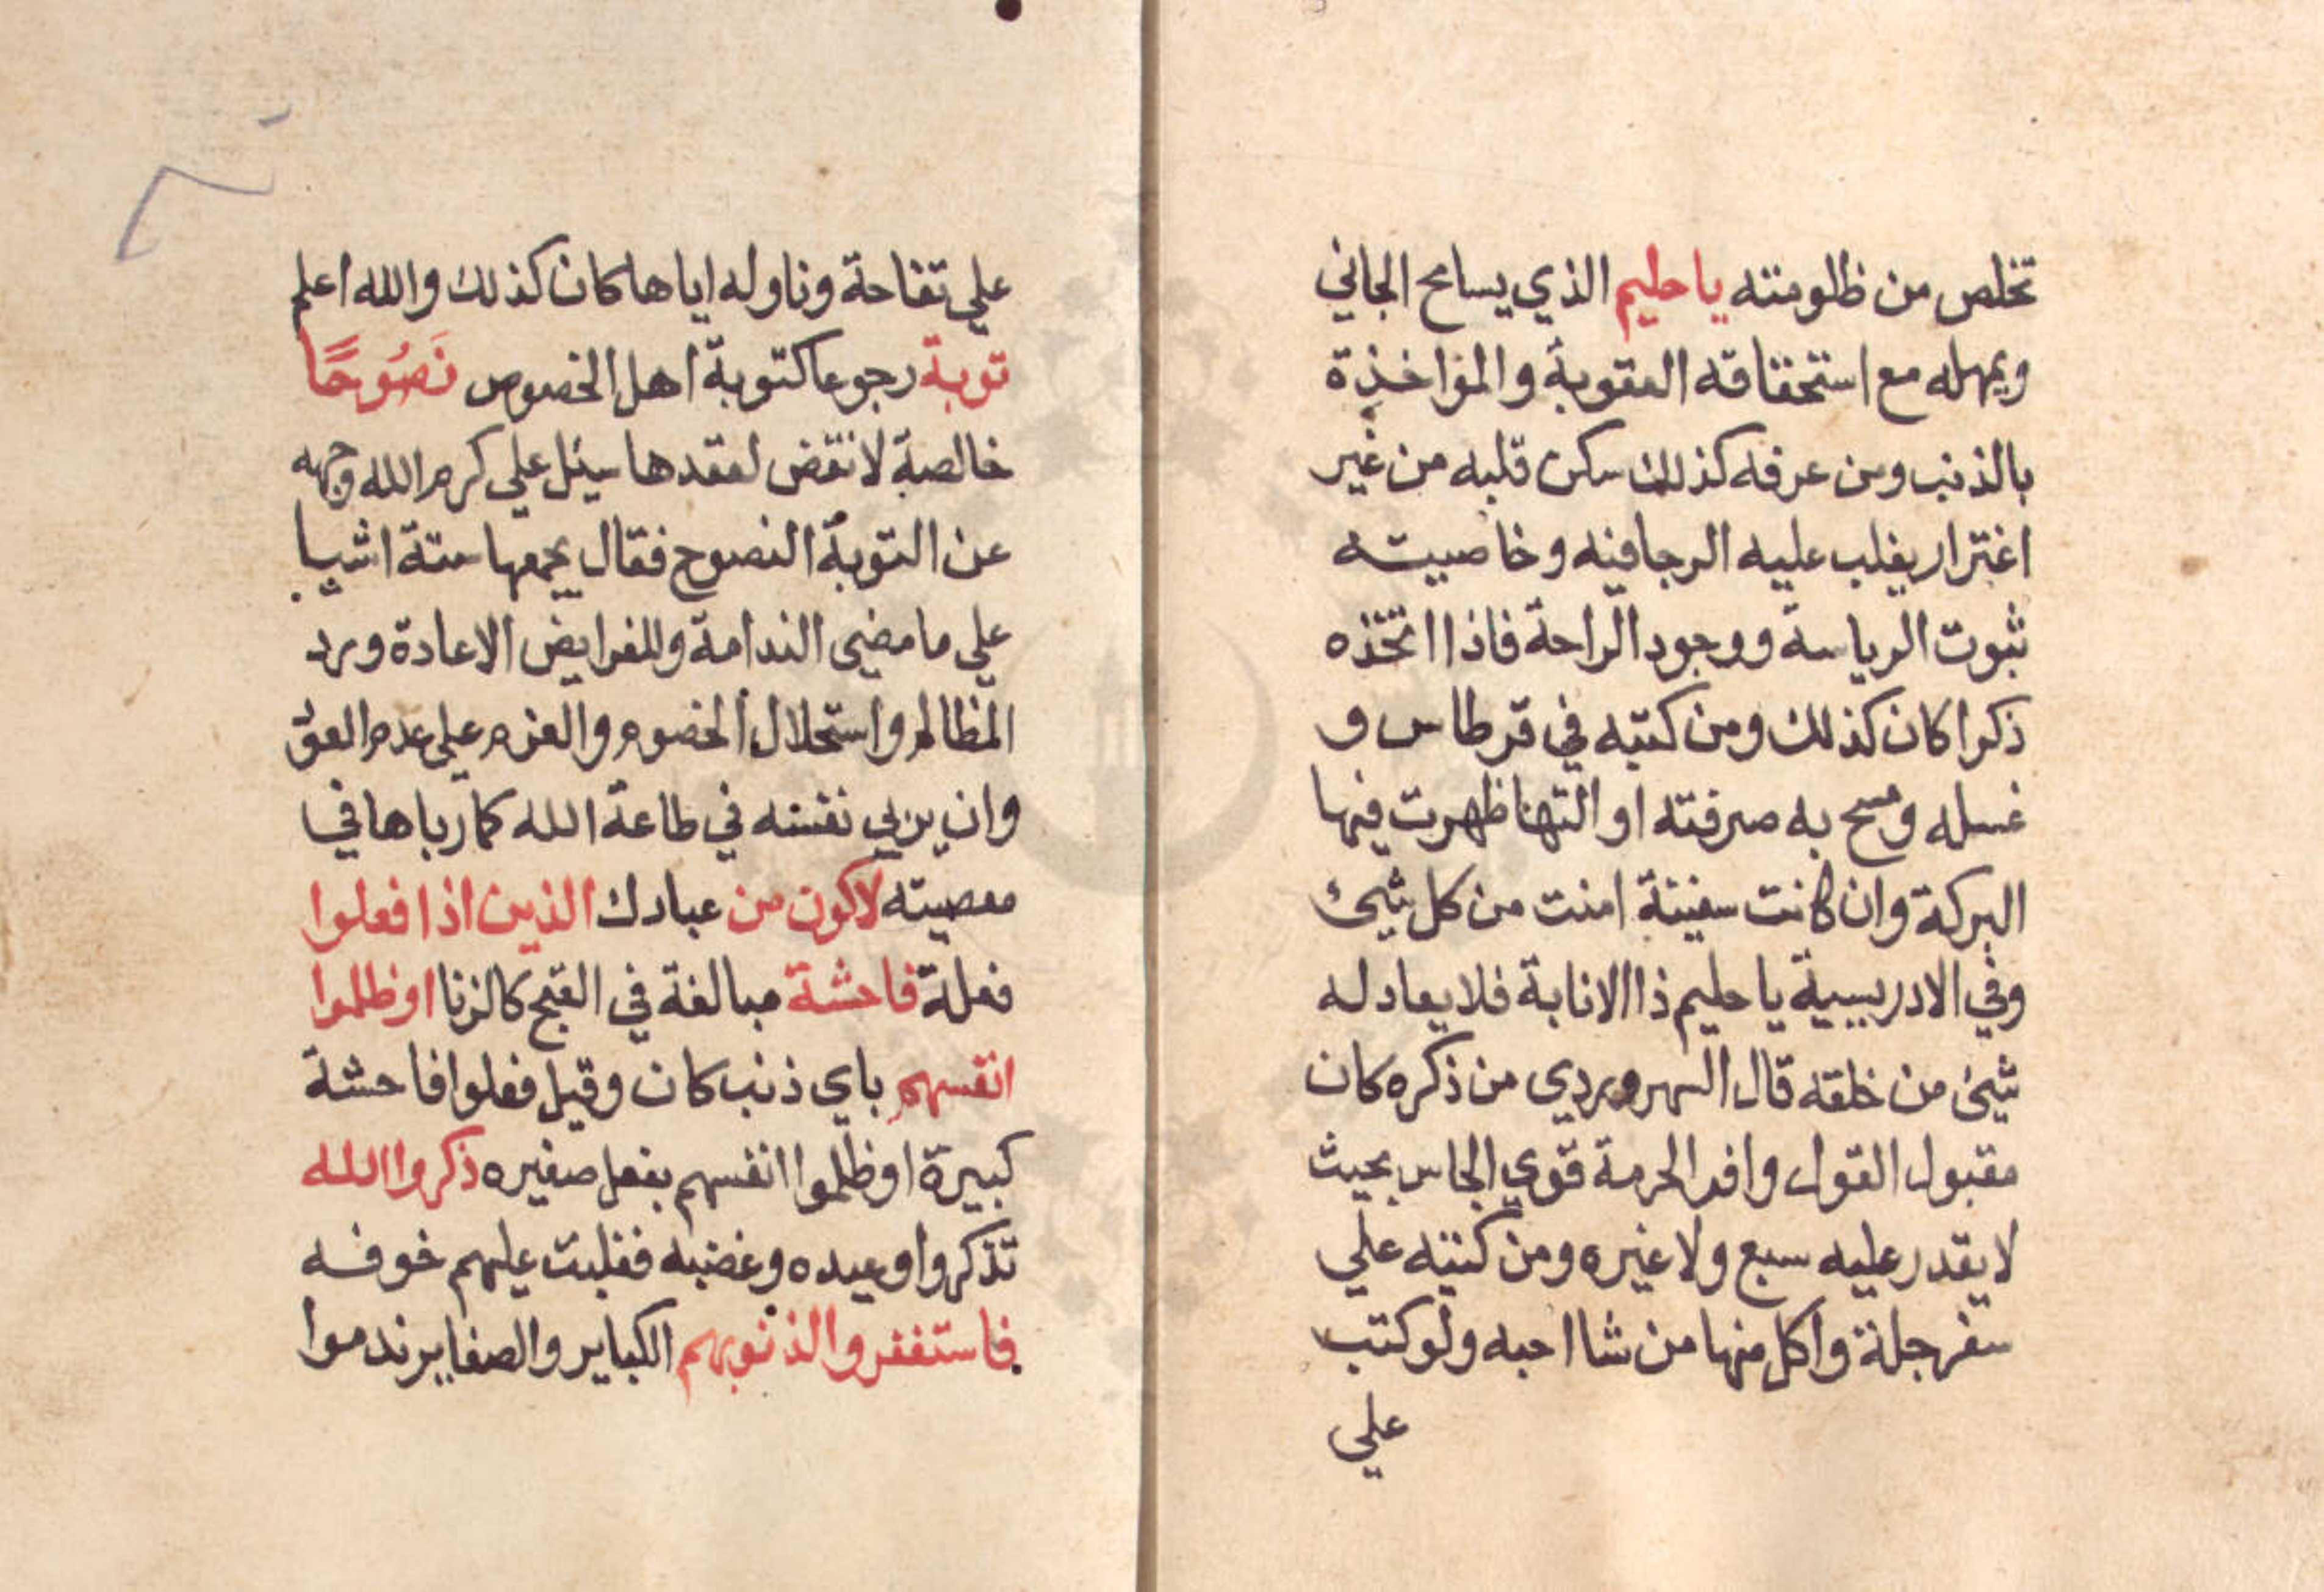 تخلص من ظلومته يا حليم الذي يسامح الجاني
ويمهله مع استحقاقه العقوبة والمواخذة
بالذنب ومن عرفه كذلك سكن قلبه من غير
اغترار يغلب عليه الرجا فيه وخاصيته
ثبوت الرياسة ووجود الراحة فاذا اتخذه
ذكرا كان كذلك ومن كتبه في قرطاس و
غسله ومسح به صرفته او التها ظهرت فيها
البركة وان كانت سفينة امنت من كل شيء
وفي الادريسية يا حليم ذا الانابة فلا يعادله
شيء من خلقه قال السهروردي من ذكره كان
مقبول القول وافر الحرمة قوي الجاس بحيث
لا يقدر عليه سبع ولا غيره ومن كتبه علي
سفرجلة واكل منها من شا احبه ولو كتب
علي
علي تفاحة وناوله اياها كان كذلك والله اعلم
توبة رجوعا كتوبة اهل الخصوص نَصُوحًا
خالصة لا نقض لعقدها سيل علي كرم الله وجهه
عن التوبة النصوح فقال يجمعها ستة اشيا
علي ما مضي الندامة وللفرايض الاعادة ورد
المظالم واستحلال الخصوم والعزم علي عدم العود
وان يربي نفسه في طاعة الله كما رباها في
معصيته لاكون من عبادك الذين اذا فعلوا
فعلة فاحشة مبالغة في القبح كالزنا او ظلموا
انفسهم باي ذنب كان وقيل فعلوا فاحشة
كبيرة او ظلموا انفسهم بفعل صغيره ذكروا الله
تذكروا وعيده وغضبه فغلبت عليهم خوفه
فاستغفروا لذنوبهم الكباير والصغاير ندموا